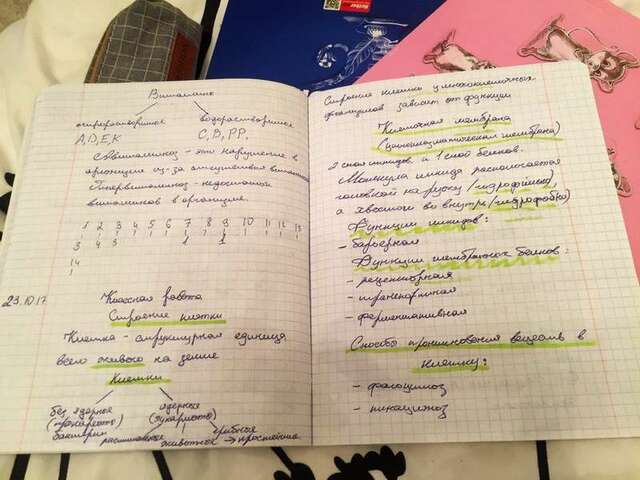 Витамины
жирорастворимые водорастворимые
A, D, E, K C, B, PP.
Авитаминоз - это нарушение в
организме из-за отсутствия витаминов
Гипервитаминоз - недостаток
витаминов в организме.
1 2 3 4 5 6 7 8 9 10 11 12 13
14
23.10.17 Классная работа
Строение клетки
Клетка - структурная единица
всего живого на земле
Клетки
без ядерные ядерные
(прокариоты) (эукариоты)
бактерии растительные животные грибные → простейшие
Строение клетки у многоклеточных
организмов зависит от функции
Клеточная мембрана
(цитоплазматическая мембрана)
2 слоя липидов и 1 слой белков.
Молекула липида располагается
головкой на
а хвостом во внутрь
Функции липидов:
- барьерная
Функции мембранных белков:
- рецепторная
- транспортная
- ферментативная
Способы проникновения веществ в
клетку:
- фагоцитоз
- пиноцитоз